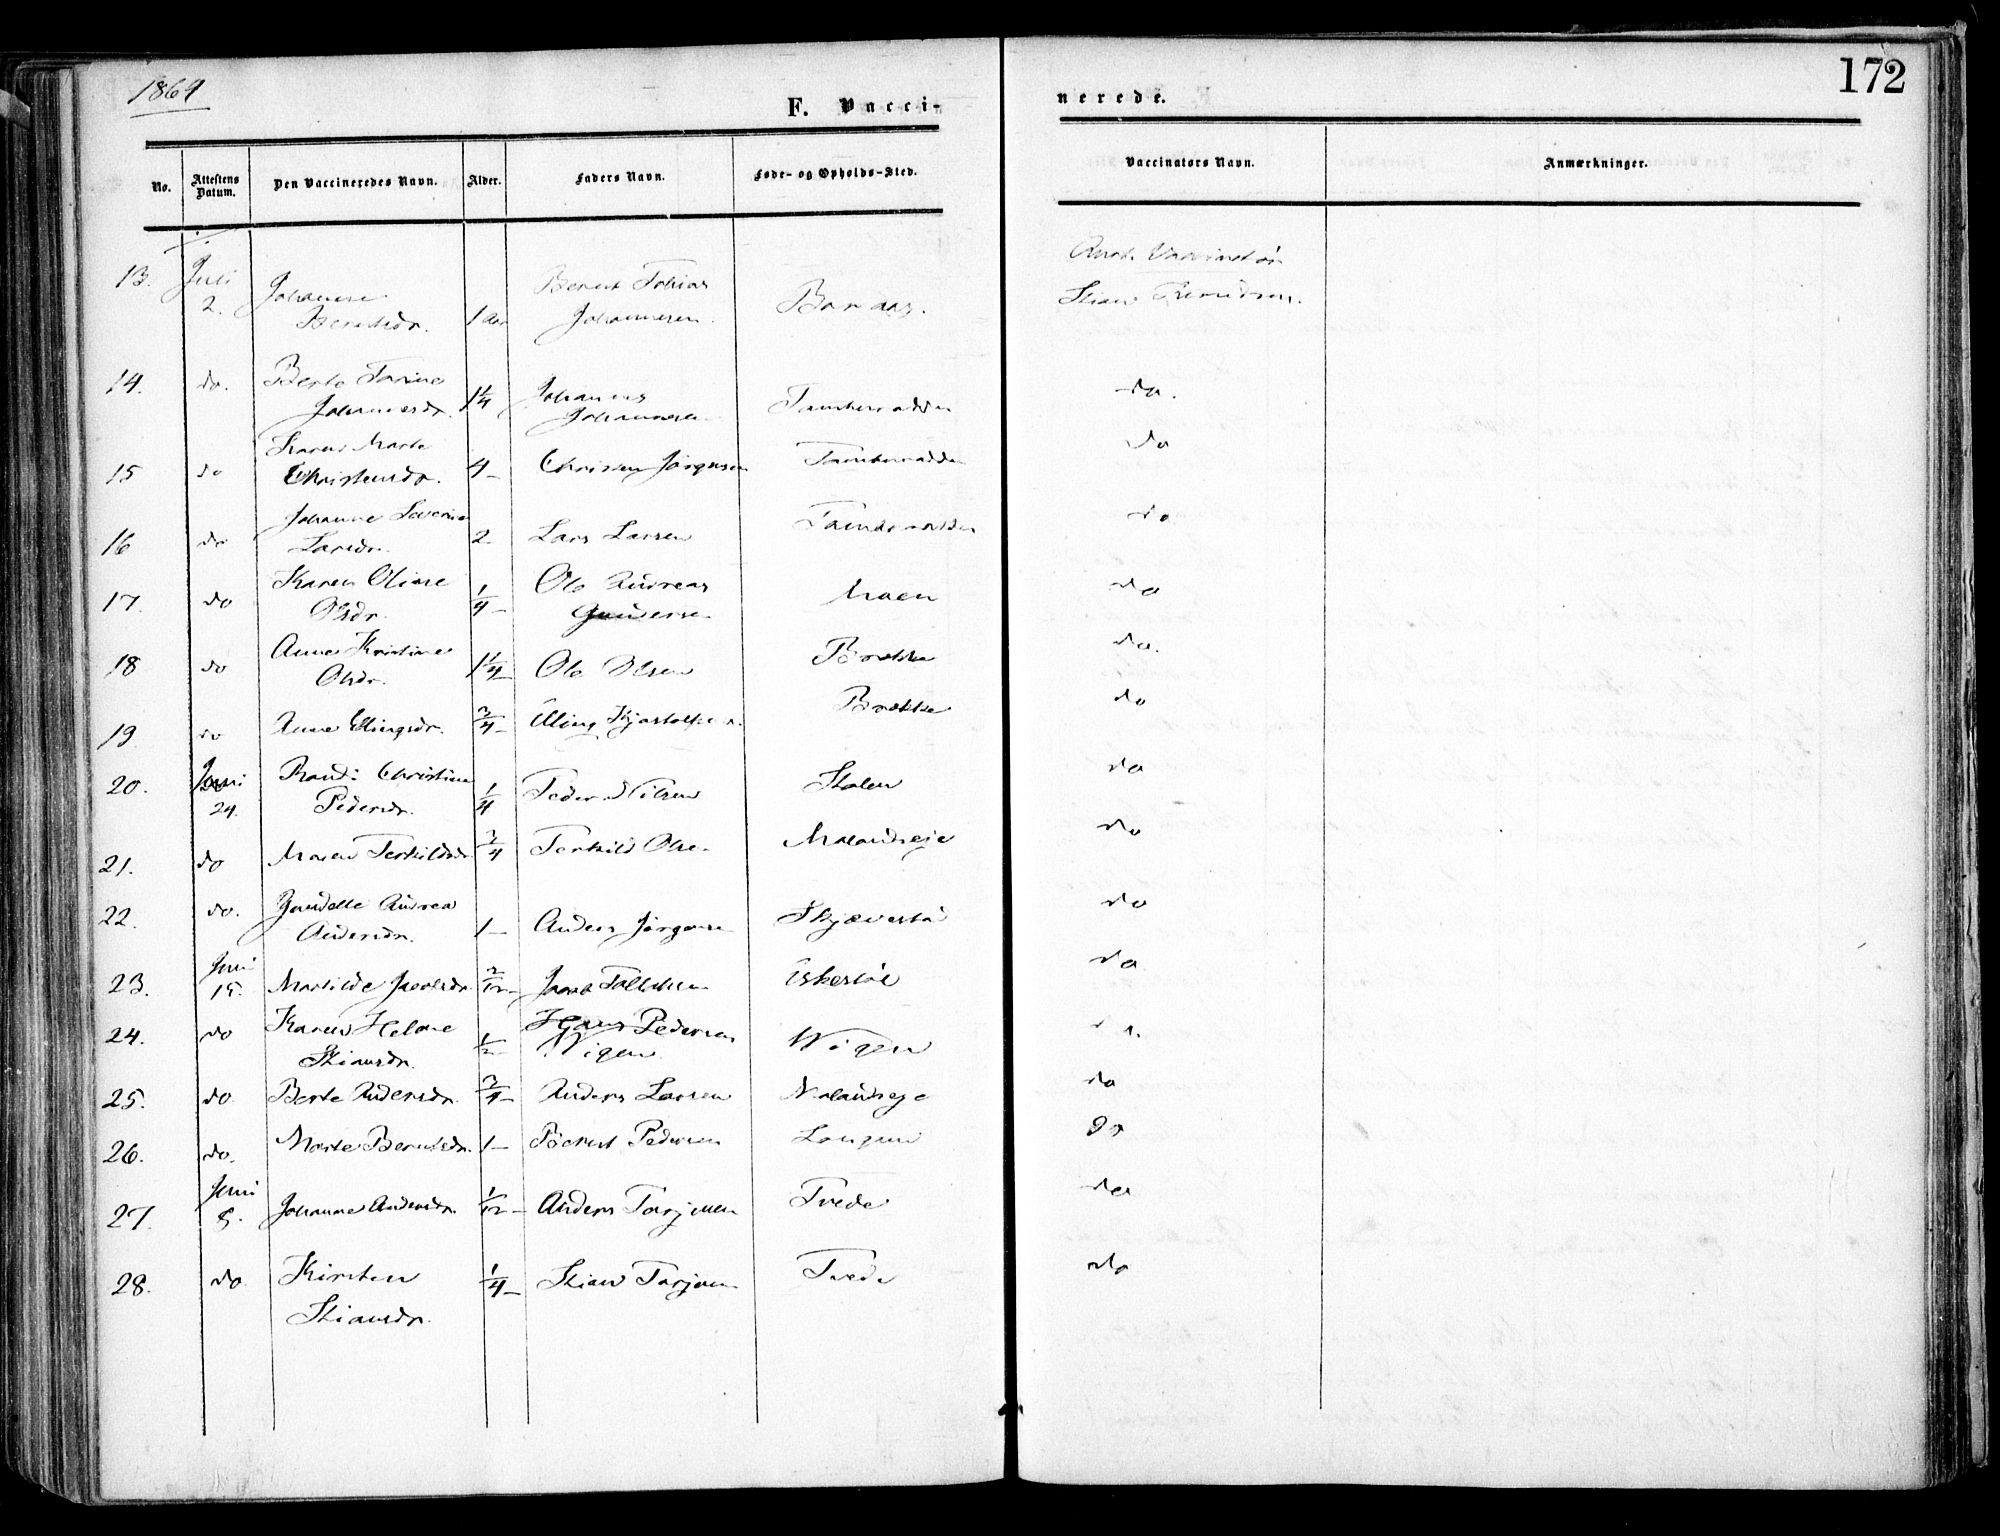 1869
F. Vacci-
nerede.
172
No.
Attestens Datum.
Den Vaccineredes Navn.
Alder.
Faders Navn.
Føde- og Opholds-Sted.
Vaccinators Navn.
Anmærkninger.
13. Juli 2. Johanne Berntsdr. 1 Aar Bernt Tobias Johannesen Boraas. Vaccinatør Stian
14. do. Berte Johannesdr. 1 1/4 Johannes Johannesen do.
15 do Karen Marte Christensdr. 4 - Christen Jørgensen do
16 do Johanne Severine Larsdr. 2 Lars Larsen do
17. do Karen Oline Olsdr. 1/4 - Ole Andreas Gundersen Moen do
18 do Anne Kristine Olsdr. 1 1/4 - Ole Olsen Brække do.
19 do Anne Ellingsdr. 3/4 - Elling Brække do
20. Juni 24. Randi Christine Pedersdr. 1/4 Peder Nilsen Stølen do
21. do Maren Terkildsdr. 3/4 Terkild Olsen Molandseje do
22. do. Gundelle Andrea Andersdr. 1 - Anders Jørgensen Skjævestad do
23. Juni 15. Martilde Jacobsdr. 2/12 - Jacob Eskestøl do
24. do Karen Helene Stiansdr. 1/2 - Pedersen Vigen Vigen
25. do Berte Andersdr. 3/4 - Anders Larsen Molandseje do
26. do. Marte Berntsdr. 1 - Bernt Pedersen do
27. Juni 5. Johanne Andersdr. 1/12 - Anders Tarjesen Trede do
28. do. Kirsten Stiansdr. 1/4 - Stian Tarjesen Trede do